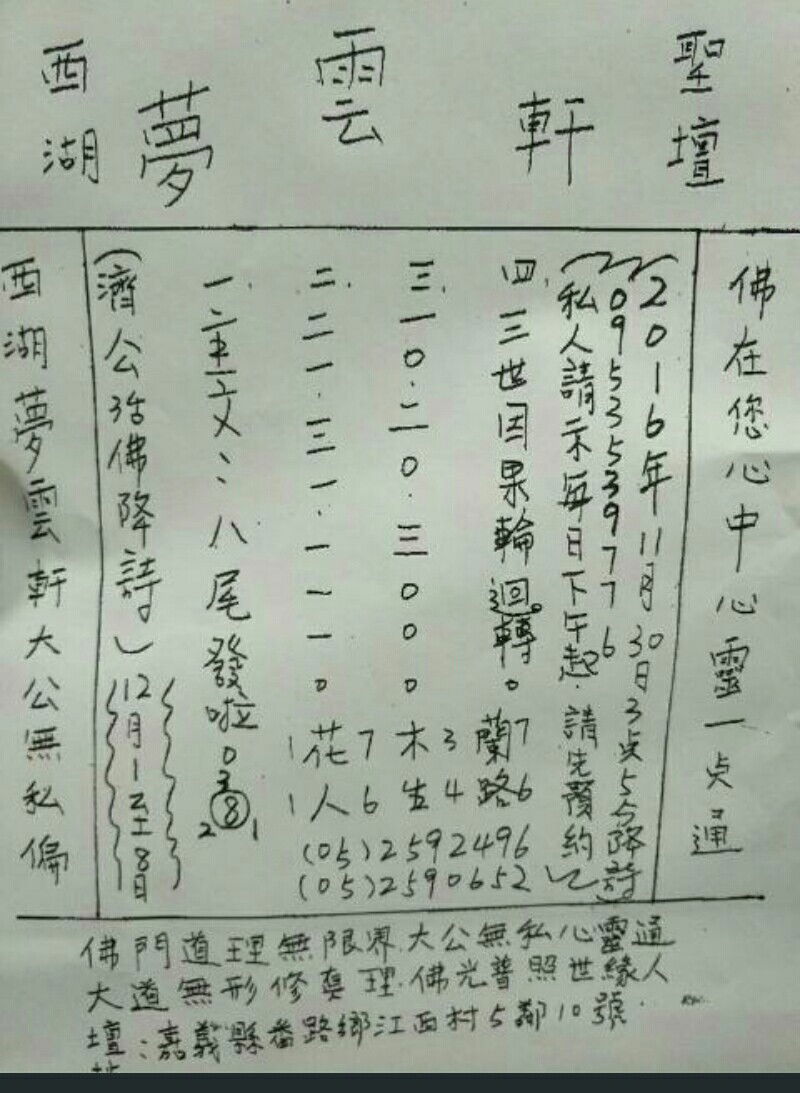 西湖 夢雲軒 聖壇
西湖夢雲軒大公無私偏
(濟公活佛降詩)12月1至8日
八尾發啦
二.二一.三一.一一一。
三.一0.二0.三000
四.三世因果輪迴轉。
1花7木3蘭7
1人6生4路6
(05)2592496
(05)2590652
(私人請示每日下午起.請先預約)
0953539776
(2016年11月30日3点5分降詩)
佛在您心中心靈一点通
佛門道理無限界.大公無私心靈通
大道無形修真理.佛光普照世緣人
壇:嘉義縣番路鄉江西村5鄰10號.